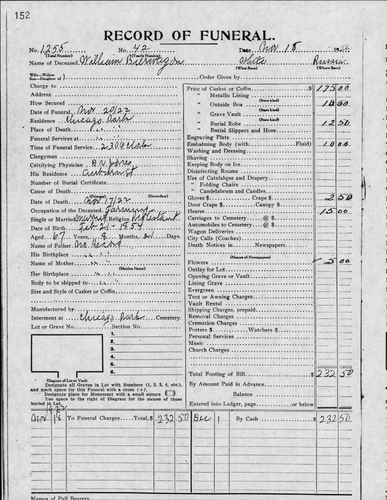 152
RECORD OF FUNERAL.
No. 1255 No. 42 Date Nov 18
(Total Number) (Yearly Number)
Name of Deceased William White Russia
(What Race) (Where Born)
Order Given by
Charge to
Address
How Secured
Date of Funeral Nov 20/22
Residence Chicago Park
Place of Death
Funeral Services at
Time of Funeral Service
Clergyman
Certifying Physician
His Residence
Number of Burial Certificate
Cause of Death
Date of Death Nov 17/22
Occupation of the Deceased Farming
Single or Married Married Religion Protestant
Date of Birth Feb 21 - 1854
Aged 67 Years 8 Months Days
Name of Father No Record
His Birthplace " "
Name of Mother " "
(Maiden Name)
Her Birthplace " "
Body to be shipped to
Size and Style of Casket or Coffin
Manufactured by
Interment at Chicago Park Cemetery.
Lot or Grave No. Section No.
Diagram of Lot or Vault
Designate all Graves in Lot with Numbers (1, 2, 3, 4, etc.),
and mark space for this Funeral with a cross (+).
Designate place for Monument with a small square
Use space to the right of Diagram for the names of those
buried in Lot.
Price of Casket or Coffin $ 175 00
" Metallic Lining
" Outside Box 18 00
" Grave Vault
" Burial Robe 12 50
" Burial Slippers and Hose
Engraving Plate
Embalming Body (with Fluid) 10 00
Washing and Dressing
Shaving
Keeping Body on Ice
Disinfecting Rooms
Use of Catafalque and Drapery
" Folding Chairs
" Candelabrum and Candles
Gloves $ Crape $ 2 50
Door Crape $ Candles $
Hearse 15 00
Carriages to Cemetery @ $
Automobiles to Cemetery @ $
Wagon Deliveries
City Calls (Coaches)
Death Notices in Newspapers
(Names of Newspapers)
Flowers 5 00
Outlay for Lot
Opening Grave or Vault
Lining Grave
Evergreen
Tent or Awning Charges
Vault Rental
Shipping Charges, prepaid
Removal Charges
Cremation Charges
Porters $ Watchers $
Personal Services
Music
Church Charges
Total Footing of Bill $ 232 50
By Amount Paid in Advance
Balance
Entered into Ledger, page or below
1922
Nov 18 To Funeral Charges Total, $ 232 50 Dec 1 By Cash $ 232 50
Names of Pall Bearers